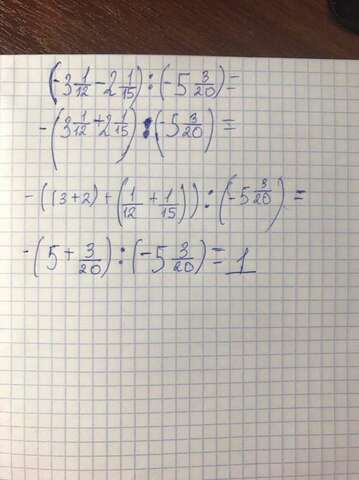 (-3 1/12 - 2 1/15) : (-5 3/20) =
-(3 1/12 + 2 1/15) : (-5 3/20) =
-((3+2) + (1/12 + 1/15)) : (-5 3/20) =
-(5 + 3/20) : (-5 3/20) = 1